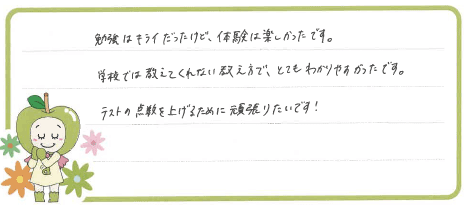 勉強はキライだったけど、体験は楽しかったです。
学校では教えてくんない教え方で、とてもわかりやすかったです。
テストの点数を上げるために頑張りたいです!